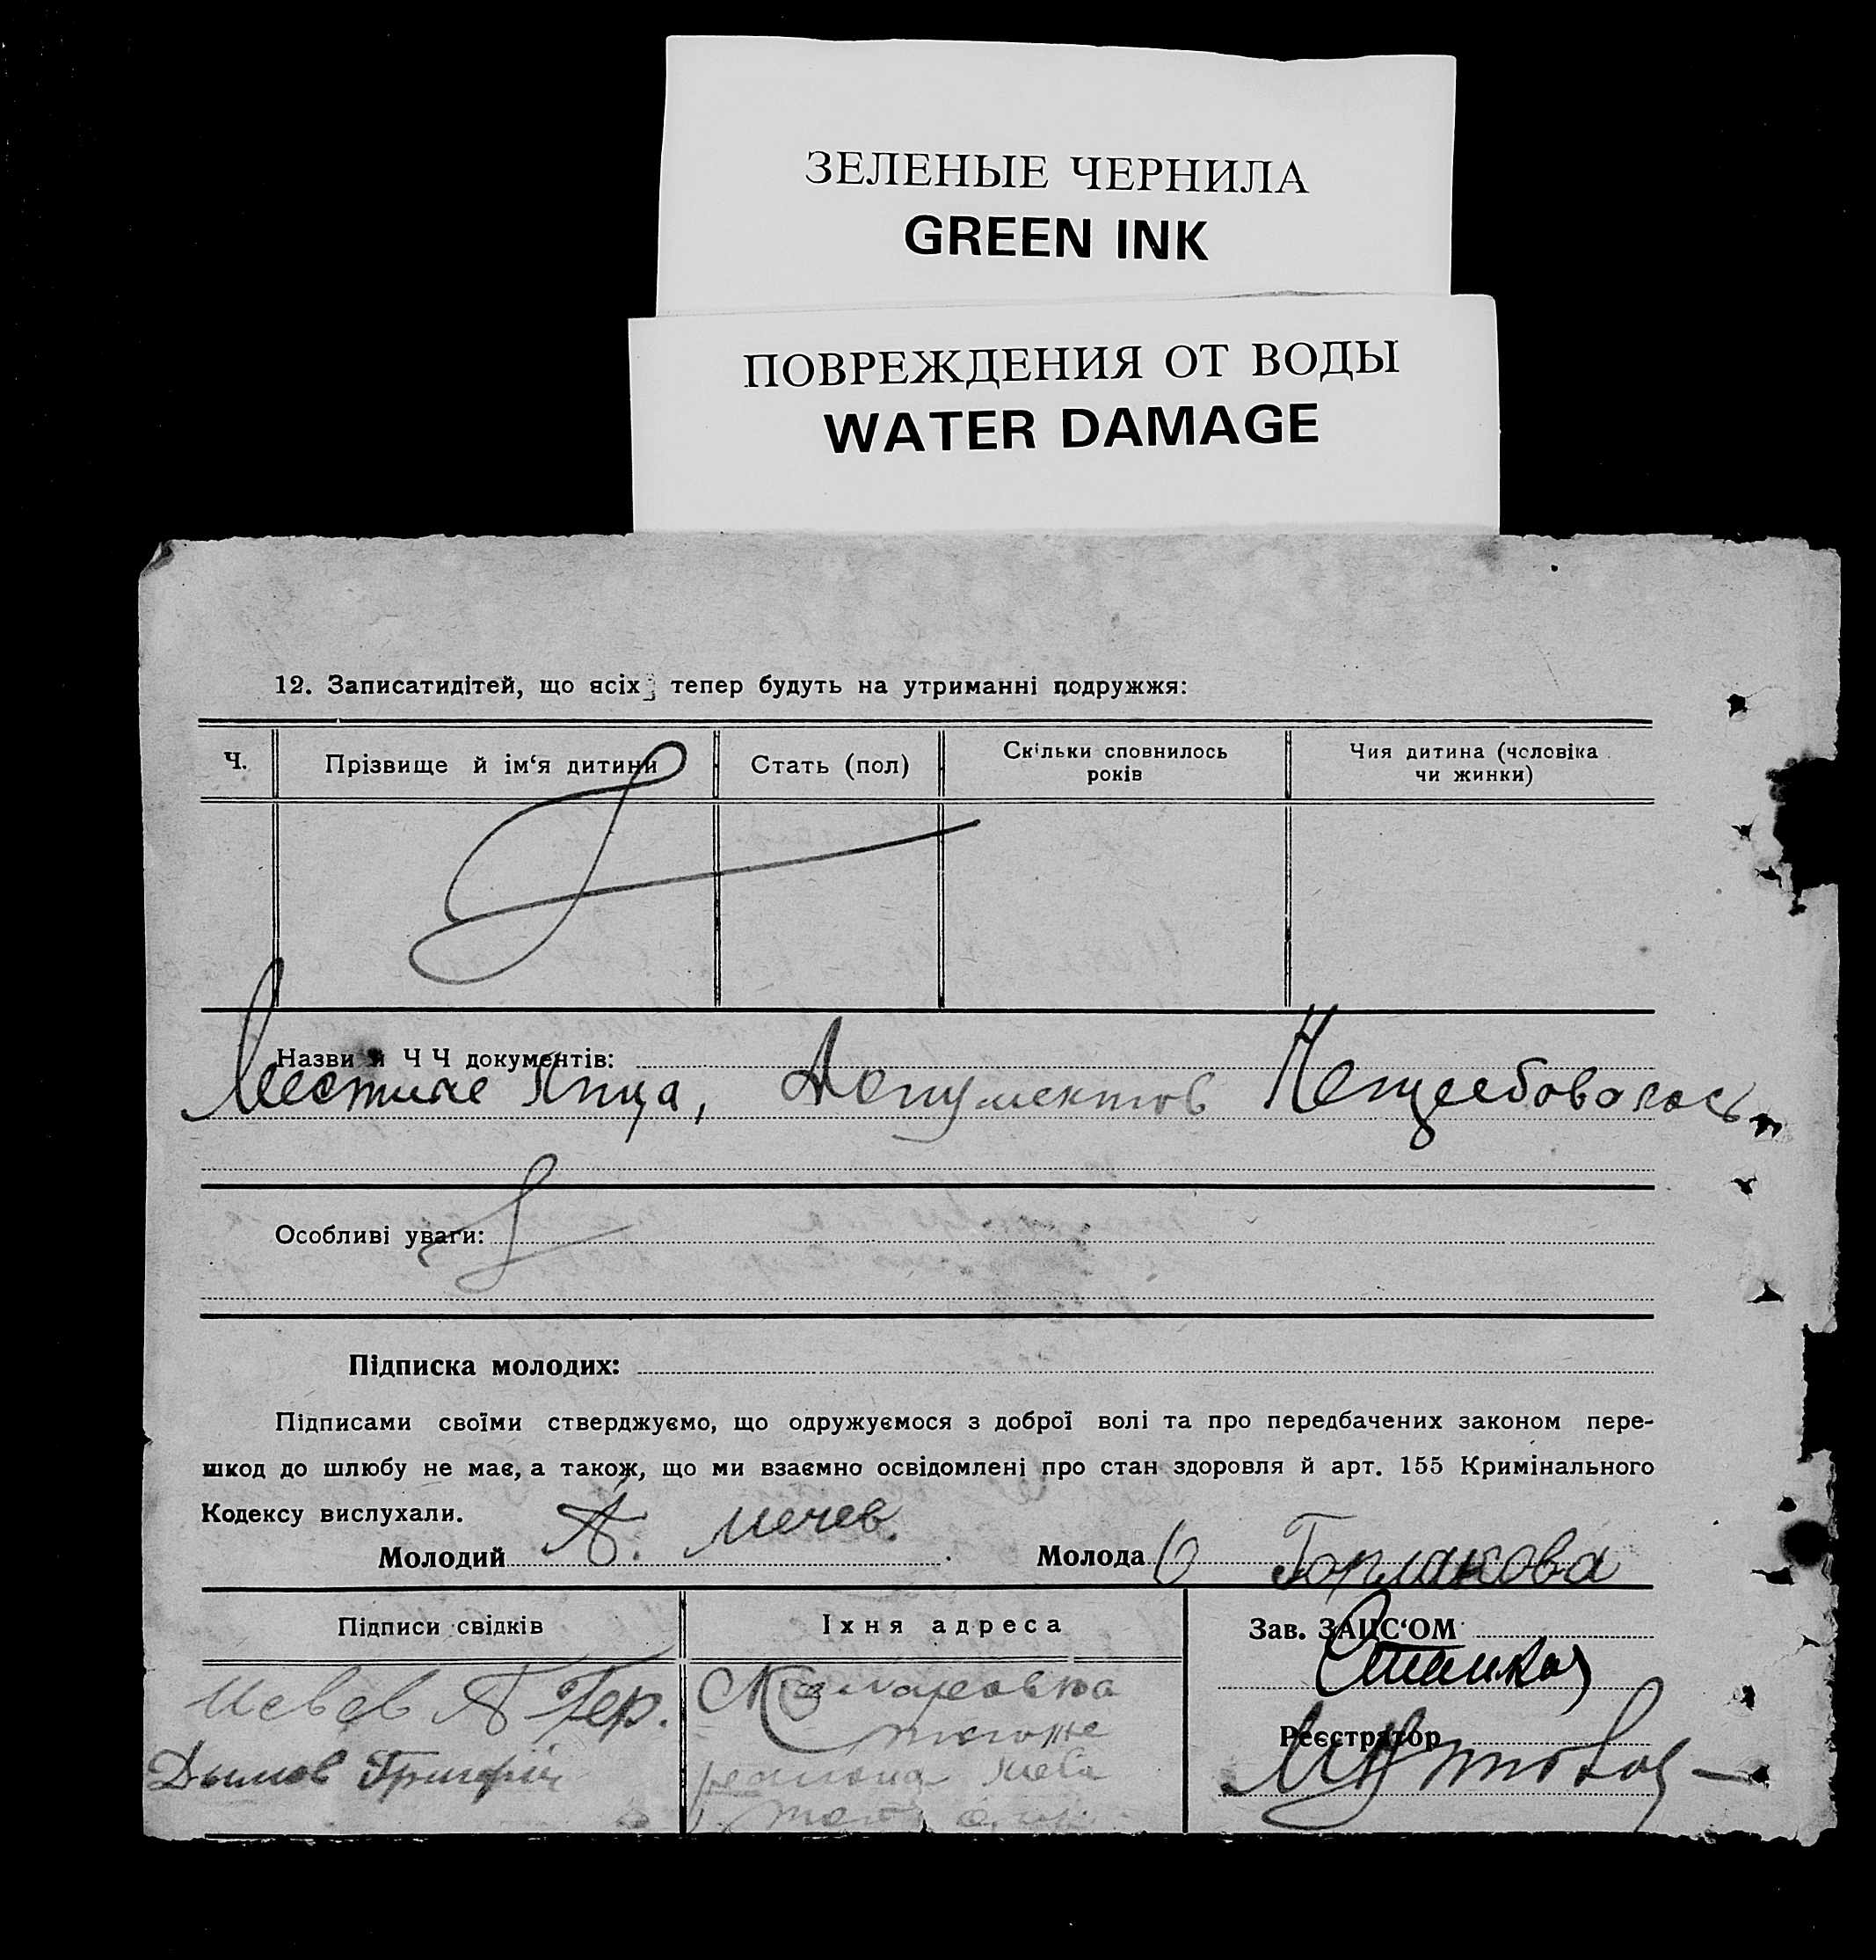 ЗЕЛЕНЫЕ ЧЕРНИЛА
GREEN INK
ПОВРЕЖДЕНИЯ ОТ ВОДЫ
WATER DAMAGE
12. Записатидітей, що всіх тепер будуть на утриманні подружжя:
Ч.
Прізвище й ім‘я дитини
Стать (пол)
Скільки сповнилось
років
Чия дитина (человіка
чи жинки)
Назви й Ч Ч документів:
Местные Лица, Документов Нетребовалось
Особливі уваги:
Підписка молодих:
Підписами своїми стверджуємо, що одружуємося з доброї волі та про передбачених законом пере-
шкод до шлюбу не має, а також, що ми взаємно освідомлені про стан здоровля й арт. 155 Кримінального
Кодексу вислухали.
Молодий А. Мечев.
Молода О Горлакова
Підписи свідків
Іхня адреса
Зав. ЗАЦС‘ОМ
Гер.
Дымов Григорій
Реєстратор